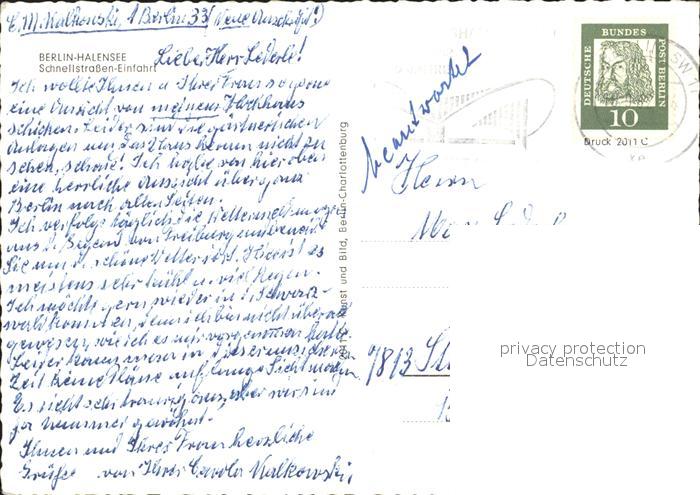 C. M. Kalkowski, 1 Berlin 33 (Neue Anschrift!)
BERLIN-HALENSEE
Schnellstraßen-Einfahrt
Liebe, Herr Lederle!
Ich wollte Ihnen u Ihrer Frau so gerne
eine Ansicht von meinem Hochhaus
schicken. Leider sind die gärtnerischen
Anlagen um das Haus herum nicht zu
sehen, schade! Ich habe von hier oben
eine herrliche Aussicht über ganz
Berlin nach allen Seiten.
Ich verfolge täglich die Wettermeldungen
aus d. Gegend von Freiburg und beneide
Sie um d. schöne Wetter dort. Hier ist es
meistens sehr kühl u. viel Regen.
Ich möchte gern wieder in d. Schwarz-
wald kommen, denn ich bin nicht überall
gewesen, wie ich es mir vorgenommen hatte.
Leider kann man in dieser unsicheren
Zeit keine Pläne auf lange Sicht machen.
Es sieht sehr traurig aus, aber wir sind
ja Kummer gewöhnt.
Ihnen und Ihrer Frau herzliche
Grüße von Ihrer Carola Kalkowski,
2011 C Kunst und Bild, Berlin-Charlottenburg
beantwortet
DEUTSCHE BUNDES POST BERLIN
10
Druck 2011 C
Herrn
7813 St
privacy protection
Datenschutz